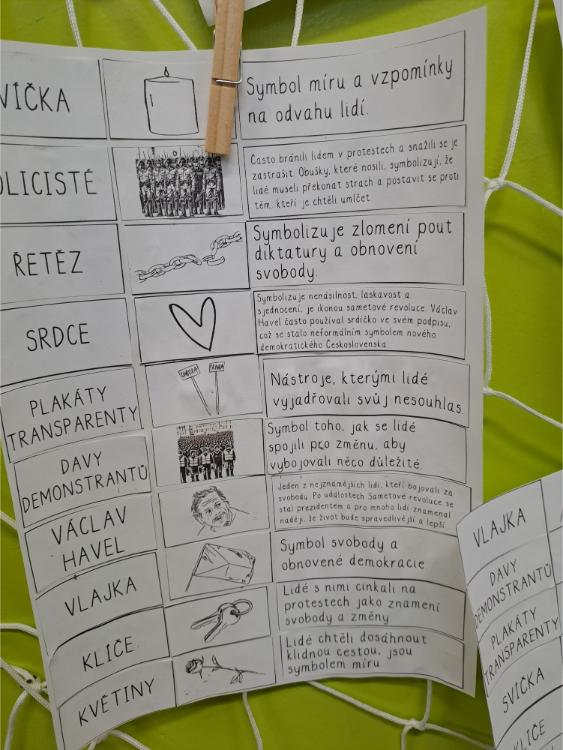 VÍČKA
Symbol míru a vzpomínky
na odvahu lidí.
OLICISTÉ
Často bránili lidem v protestech a snažili se je
zastrašit. Obušky, které nosili, symbolizují, že
lidé museli překonat strach a postavit se proti
těm, kteří je chtěli umlčet.
ŘETĚZ
Symbolizuje zlomení pout
diktatury a obnovení
svobody.
SRDCE
Symbolizuje nenásilnost, laskavost a
sjednocení, je ikonou sametové revoluce. Václav
Havel často používal srdíčko ve svém podpisu,
což se stalo neformálním symbolem nového
demokratického Československa
PLAKÁTY
TRANSPARENTY
Nástroje, kterými lidé
vyjadřovali svůj nesouhlas.
DAVY
DEMONSTRANTŮ
Symbol toho, jak se lidé
spojili pro změnu, aby
vybojovali něco důležité
VÁCLAV
HAVEL
Jeden z nejznámějších lidí, kteří bojovali za
svobodu. Po událostech Sametové revoluce se
stal prezidentem a pro mnoho lidí znamenal
naději, že život bude spravedlivější a lepší.
VLAJKA
Symbol svobody a
obnovené demokracie
KLÍČE
Lidé s nimi cinkali na
protestech jako znamení
svobody a změny
KVĚTINY
Lidé chtěli dosáhnout
klidnou cestou, jsou
symbolem míru
VLAJKA
DAVY
DEMONSTRANTŮ
PLAKÁTY
TRANSPARENTY
SVÍČKA
KLÍČE